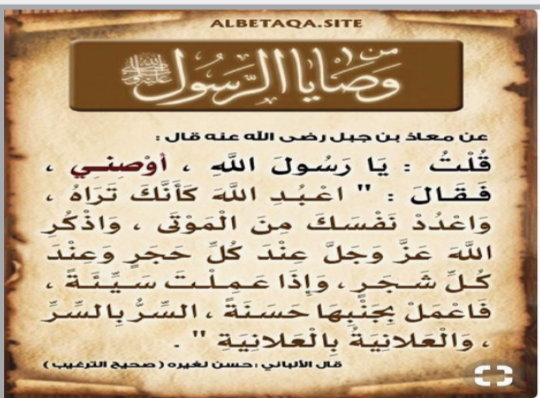 ALBETAQA.SITE
من وصايا الرسول ﷺ
عن معاذ بن جبل رضى الله عنه قال :
قُلْتُ : يَا رَسُولَ اللَّهِ ، أَوْصِنِي ،
فَقَالَ : " اعْبُدِ اللَّهَ كَأَنَّكَ تَرَاهُ ،
وَاعْدُدْ نَفْسَكَ مِنَ الْمَوْتَى ، وَاذْكُرِ
اللَّهَ عَزَّ وَجَلَّ عِنْدَ كُلِّ حَجَرٍ وَعِنْدَ
كُلِّ شَجَرٍ ، وَإِذَا عَمِلْتَ سَيِّئَةً ،
فَاعْمَلْ بِجَنْبِهَا حَسَنَةً ، السِّرُّ بِالسِّرِّ
، وَالْعَلَانِيَةُ بِالْعَلَانِيَةِ " .
قال الألباني : حسن لغيره ( صحيح الترغيب )